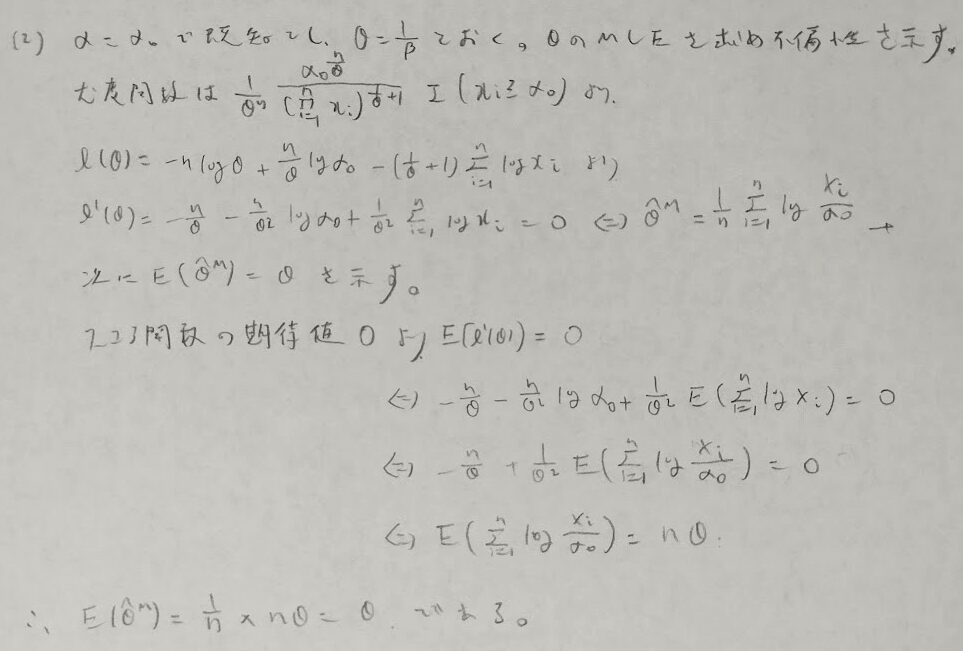 (2) α = α₀ で既知とし、θ = 1/β とおく。θのMLEを求め不偏性を示す。
尤度関数は 1/θⁿ α₀^(n/θ) / (∏_{i=1}^n x_i)^(1/θ+1) I (x_i ≥ α₀) より、
l(θ) = -n log θ + n/θ log α₀ - (1/θ + 1) Σ_{i=1}^n log x_i より
l'(θ) = -n/θ - n/θ² log α₀ + 1/θ² Σ_{i=1}^n log x_i = 0 ⇔ θ̂^M = 1/n Σ_{i=1}^n log x_i/α₀
次に E(θ̂^M) = θ を示す。
スコア関数の期待値 0 より E[l'(θ)] = 0
⇔ -n/θ - n/θ² log α₀ + 1/θ² E(Σ_{i=1}^n log x_i) = 0
⇔ -n/θ + 1/θ² E(Σ_{i=1}^n log x_i/α₀) = 0
⇔ E(Σ_{i=1}^n log x_i/α₀) = nθ.
∴ E(θ̂^M) = 1/n × nθ = θ. である。